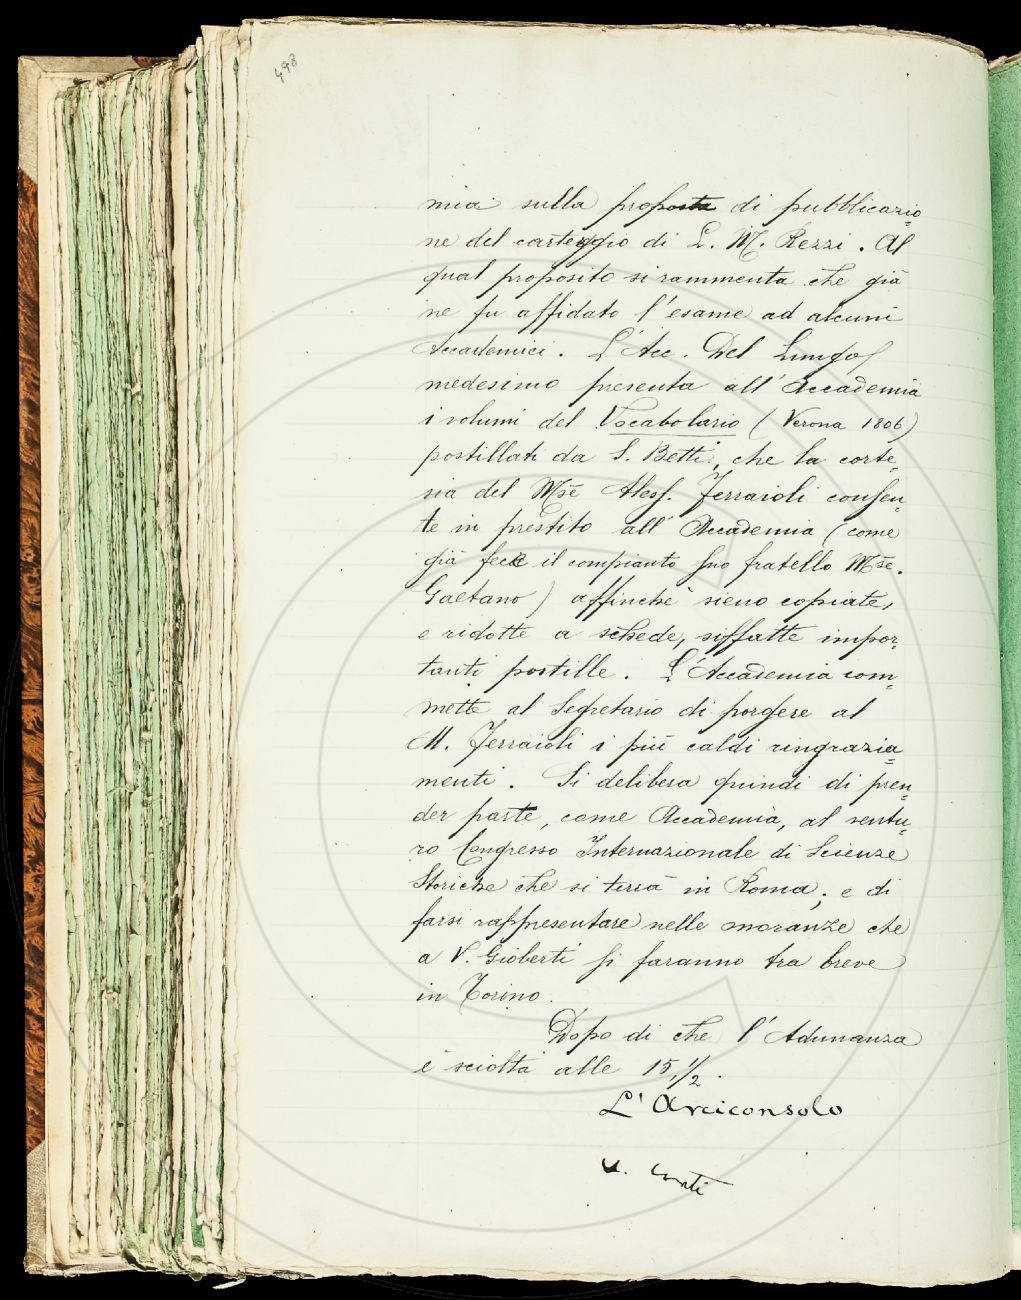 498
mia sulla proposta di pubblicazio=
ne del carteggio di L. M. Rezzi. Al
qual proposito si rammenta che già
ne fu affidato l'esame ad alcuni
Accademici. L'Acc. Del Lungo
medesimo presenta all'Accademia
i volumi del Vocabolario (Verona 1806)
postillati da S. Betti, che la corte=
sia del Mse Aless. Ferraioli consen=
te in prestito all'Accademia (come
già fece il compianto suo fratello Mse.
Gaetano) affinchè sieno copiate,
e ridotte a schede, siffatte impor=
tanti postille. L'Accademia com=
mette al Segretario di porgere al
M. Ferraioli i più caldi ringrazia=
menti. Si delibera quindi di pren=
der parte, come Accademia, al ventu=
ro Congresso Internazionale di Scienze
Storiche che si terrà in Roma; e di
farsi rappresentare nelle onoranze che
a V. Gioberti si faranno tra breve
in Torino.
Dopo di che l'Adunanza
è sciolta alle 15,1/2.
L'Arciconsolo
A. Conti